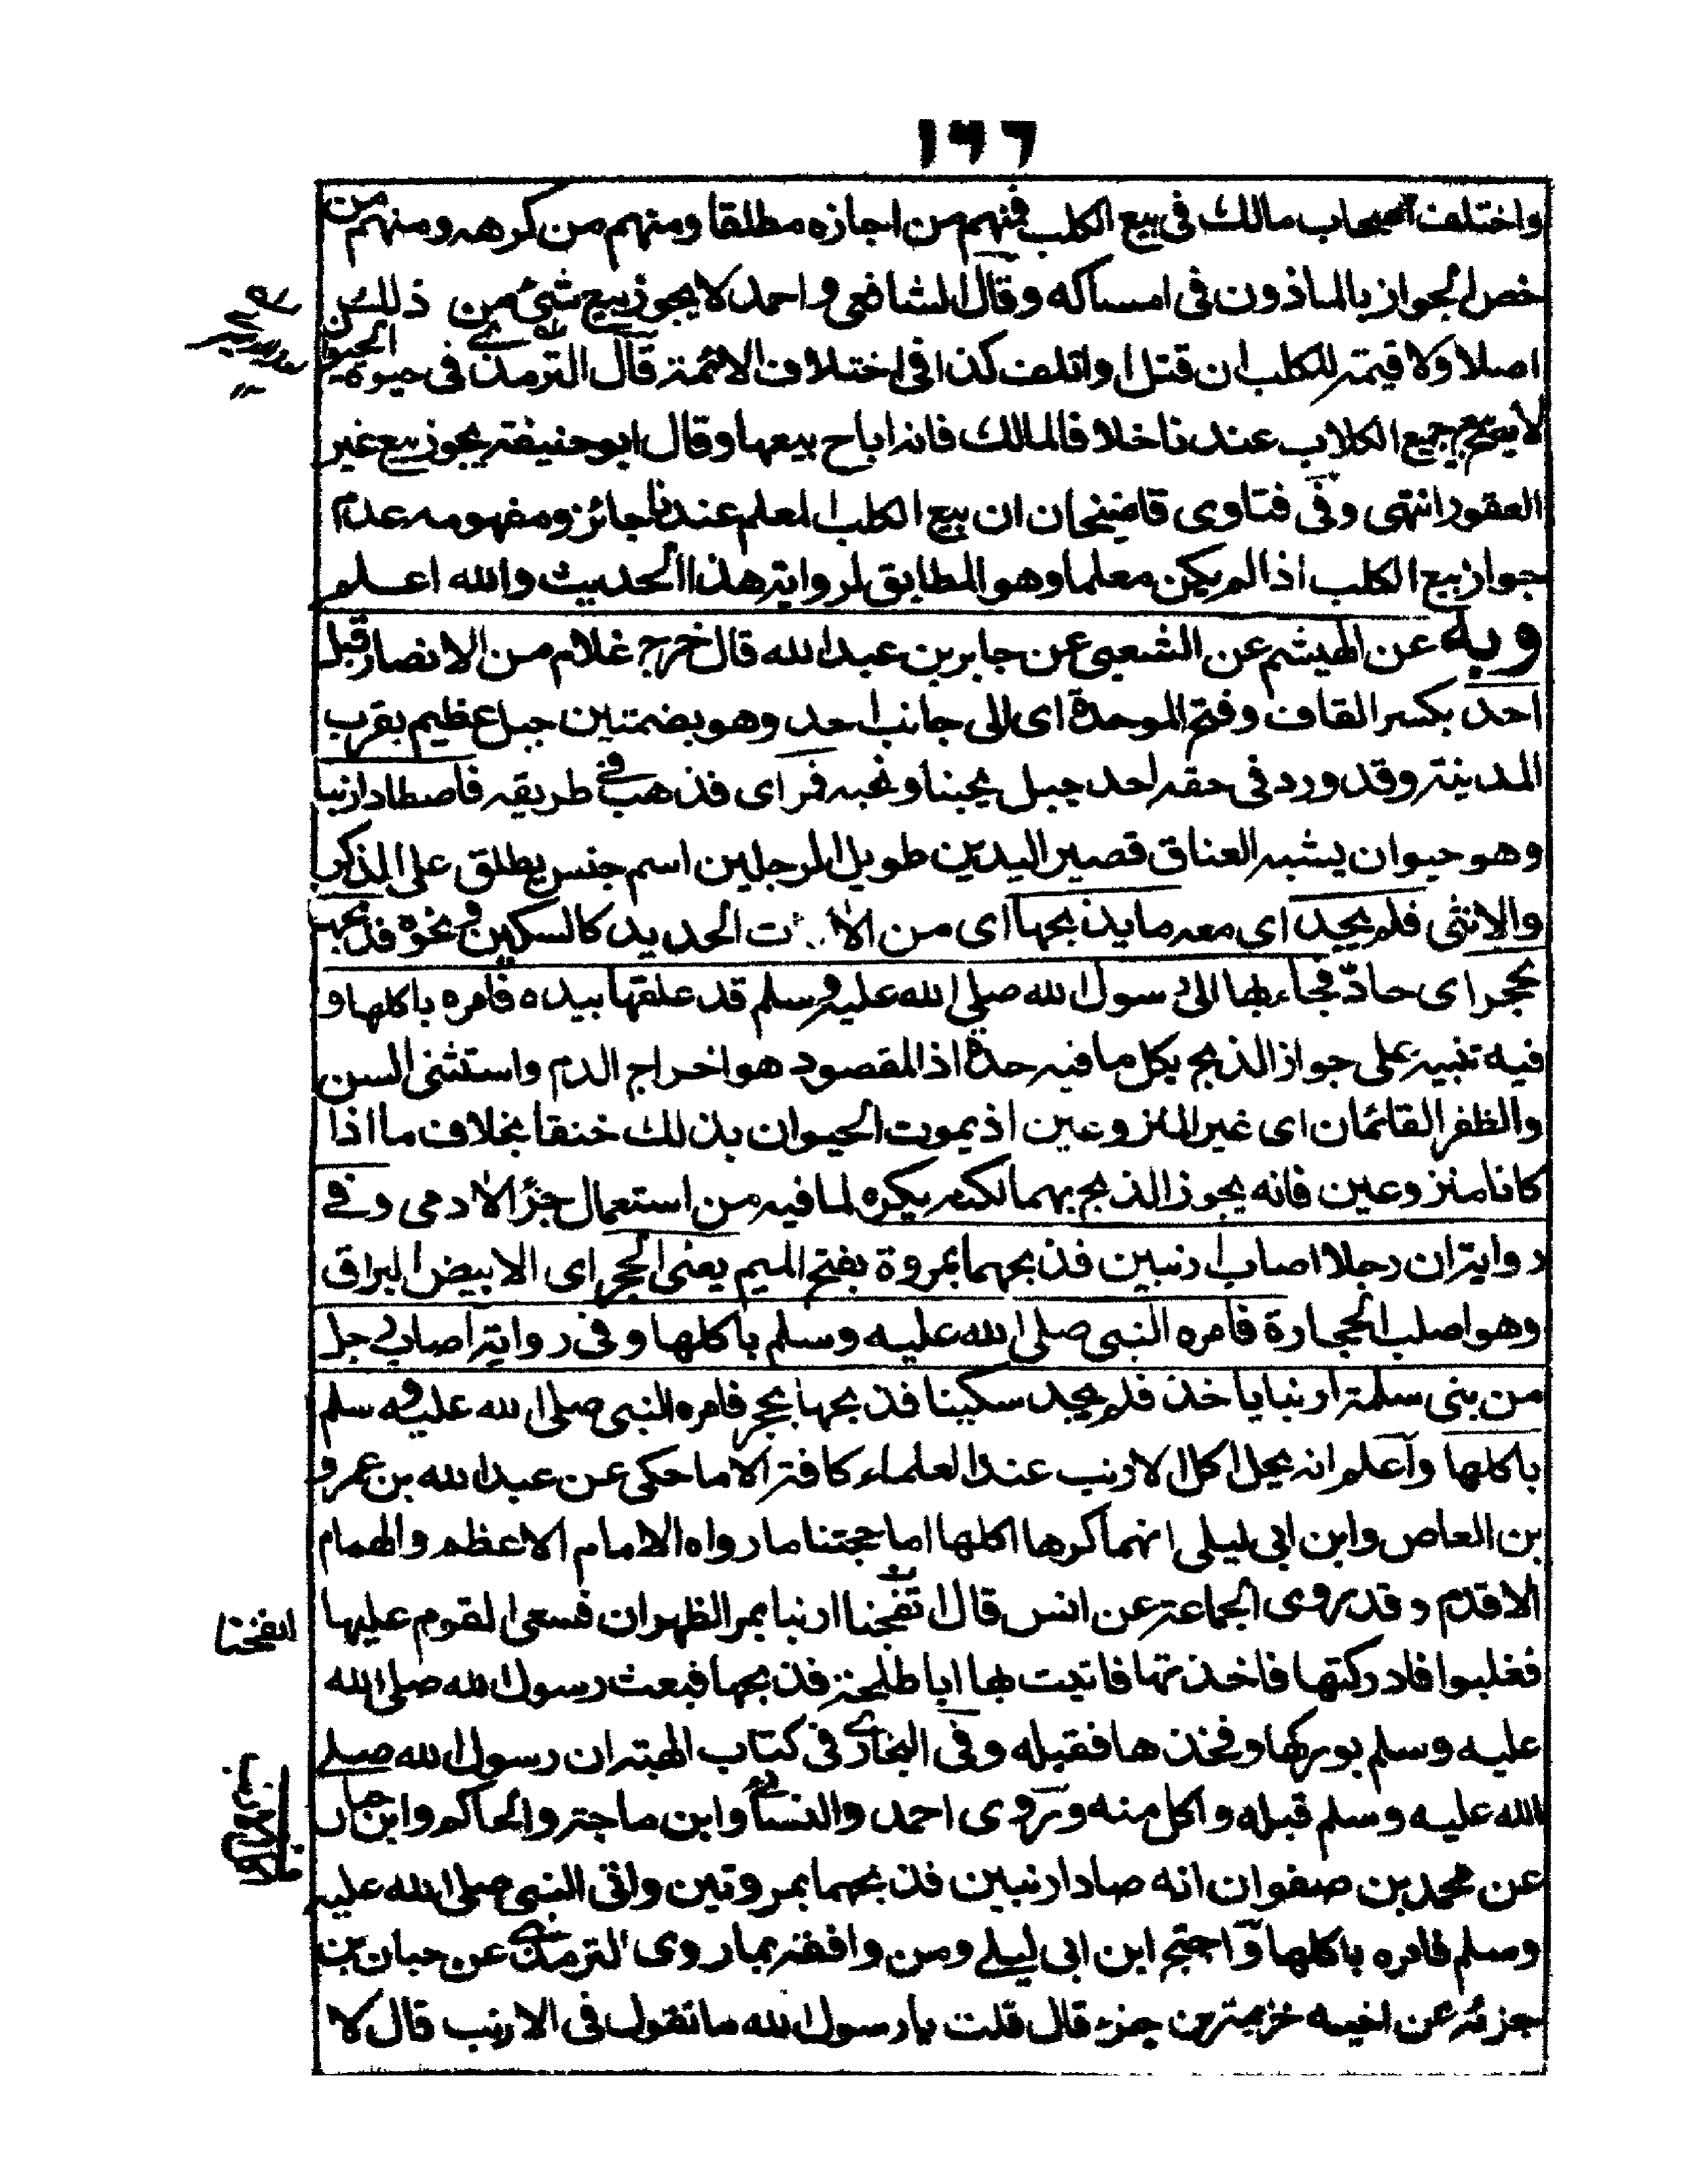 ١٦٦
واختلف اصحاب مالك فى بيع الكلب فمنهم من اجازه مطلقا ومنهم من كرهه ومنهم من
خص الجواز بالماذون فى امساكه وقال الشافعى واحمد لا يجوز بيع شئ من ذلك
اصلا ولا قيمة للكلب ان قتل او اتلف كذا فى اختلاف الائمة قال الترمذى فى حيوة الحيوان
لا يصح بيع جميع الكلاب عندنا خلافا لمالك فانه اباح بيعها وقال ابو حنيفة يجوز بيع غير
العقور انتهى وفى فتاوى قاضيخان ان بيع الكلب المعلم عندنا جائز ومفهومه عدم
جواز بيع الكلب اذا لم يكن معلما وهو المطابق لرواية هذا الحديث والله اعلم
وبه عن الهيثم عن الشعبى عن جابر بن عبد الله قال خرج غلام من الانصار قبل
احد بكسر القاف وفتح الموحدة اى الى جانب احد وهو بضمتين جبل عظيم بقرب
المدينة وقد ورد فى حقه احد جبل يحبنا ونحبه فمر اى فذهب فى طريقه فاصطاد ارنبا
وهو حيوان يشبه العناق قصير اليدين طويل الرجلين اسم جنس يطلق على المذكر
والانثى فلم يجد اى معه ما يذبحها اى من الات الحديد كالسكين ونحوه فذبحها
بحجر اى حاد فجاء بها الى رسول الله صلى الله عليه وسلم قد علقها بيده فامره باكلها و
فيه تنبيه على جواز الذبح بكل ما فيه حدة اذ المقصود هو اخراج الدم واستثنى السن
والظفر القائمان اى غير المنزوعين اذ يموت الحيوان بذلك خنقا بخلاف ما اذا
كانا منزوعين فانه يجوز الذبح بهما لكنه يكره لما فيه من استعمال جزء الادمى وفى
رواية ان رجلا اصاب ارنبين فذبحهما بمروة بفتح الميم يعنى الحجر اى الابيض البراق
وهو اصلب الحجارة فامره النبى صلى الله عليه وسلم باكلها وفى رواية اصاب رجل
من بنى سلمة ارنبا باحد فلم يجد سكينا فذبحها بحجر فامره النبى صلى الله عليه وسلم
باكلها واعلم انه يحل اكل الارنب عند العلماء كافة الا ما حكى عن عبد الله بن عمرو
بن العاص وابن ابى ليلى انهما كرها اكلها اما حجتنا ما رواه الامام الاعظم والهمام
الاقدم وقد روى الجماعة عن انس قال انفجنا ارنبا بمر الظهران فسعى القوم عليها
فغلبوا فادركتها فاخذتها فاتيت بها ابا طلحة فذبحها فبعث رسول الله صلى الله
عليه وسلم بوركها وفخذها فقبله وفى البخارى فى كتاب الهبة ان رسول الله صلى
الله عليه وسلم قبله واكل منه وروى احمد والنسائى وابن ماجة والحاكم وابن حبان
عن محمد بن صفوان انه صاد ارنبين فذبحهما بمروتين واتى النبى صلى الله عليه
وسلم فامره باكلها واحتج ابن ابى ليلى ومن وافقه بما روى الترمذى عن حبان بن
جزء عن اخيه خزيمة بن جزء قال قلت يا رسول الله ما تقول فى الارنب قال لا
انفجنا